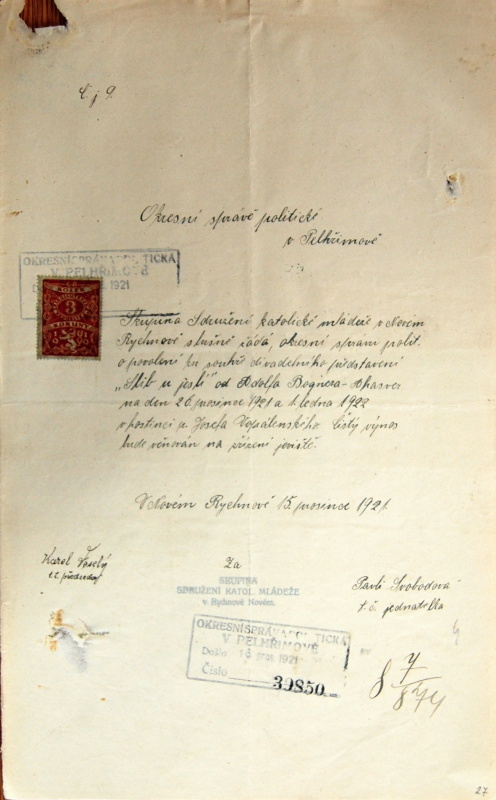 Č. j. 9.
Okresní správě politické
v Pelhřimově
OKRESNÍ SPRÁVA POLITICKÁ
V PELHŘIMOVĚ
1921
KOLEK
3
KORUNY
Skupina Sdružení katolické mládeže v Novém
Rychnově slušně žádá, okresní správu polit.
o povolení ku souhř divadelního představení
od Adolfa Bognera-Ahasver
na den 26. prosince 1921 a 1. ledna 1922
v hostinci p. Josefa Čistý výnos
bude věnován na zřízení jeviště.
V Novém Rychnově 15. prosince 1921.
Karel Veselý
t. č. předseda
Za
SKUPINA
SDRUŽENÍ KATOL. MLÁDEŽE
v Rychnově Novém.
Pavli Svobodová
t. č. jednatelka
OKRESNÍ SPRÁVA POLITICKÁ
V PELHŘIMOVĚ
Došlo 16 pros. 1921
Číslo 39850
27